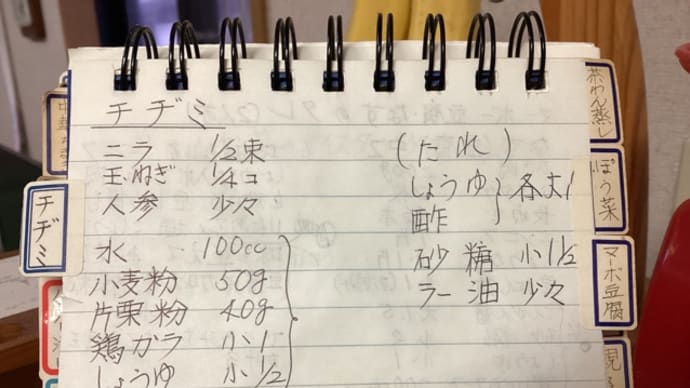 チヂミ
ニラ 1/2束
玉ねぎ 1/4コ
人参 少々
水 100cc
小麦粉 50g
片栗粉 40g
鶏ガラ 小1
しょうゆ 小1/2
(たれ)
しょうゆ
酢
各大1
砂糖 小1/2
ラー油 少々
チヂミ
茶わん蒸し
ぽう菜
マーボ豆腐